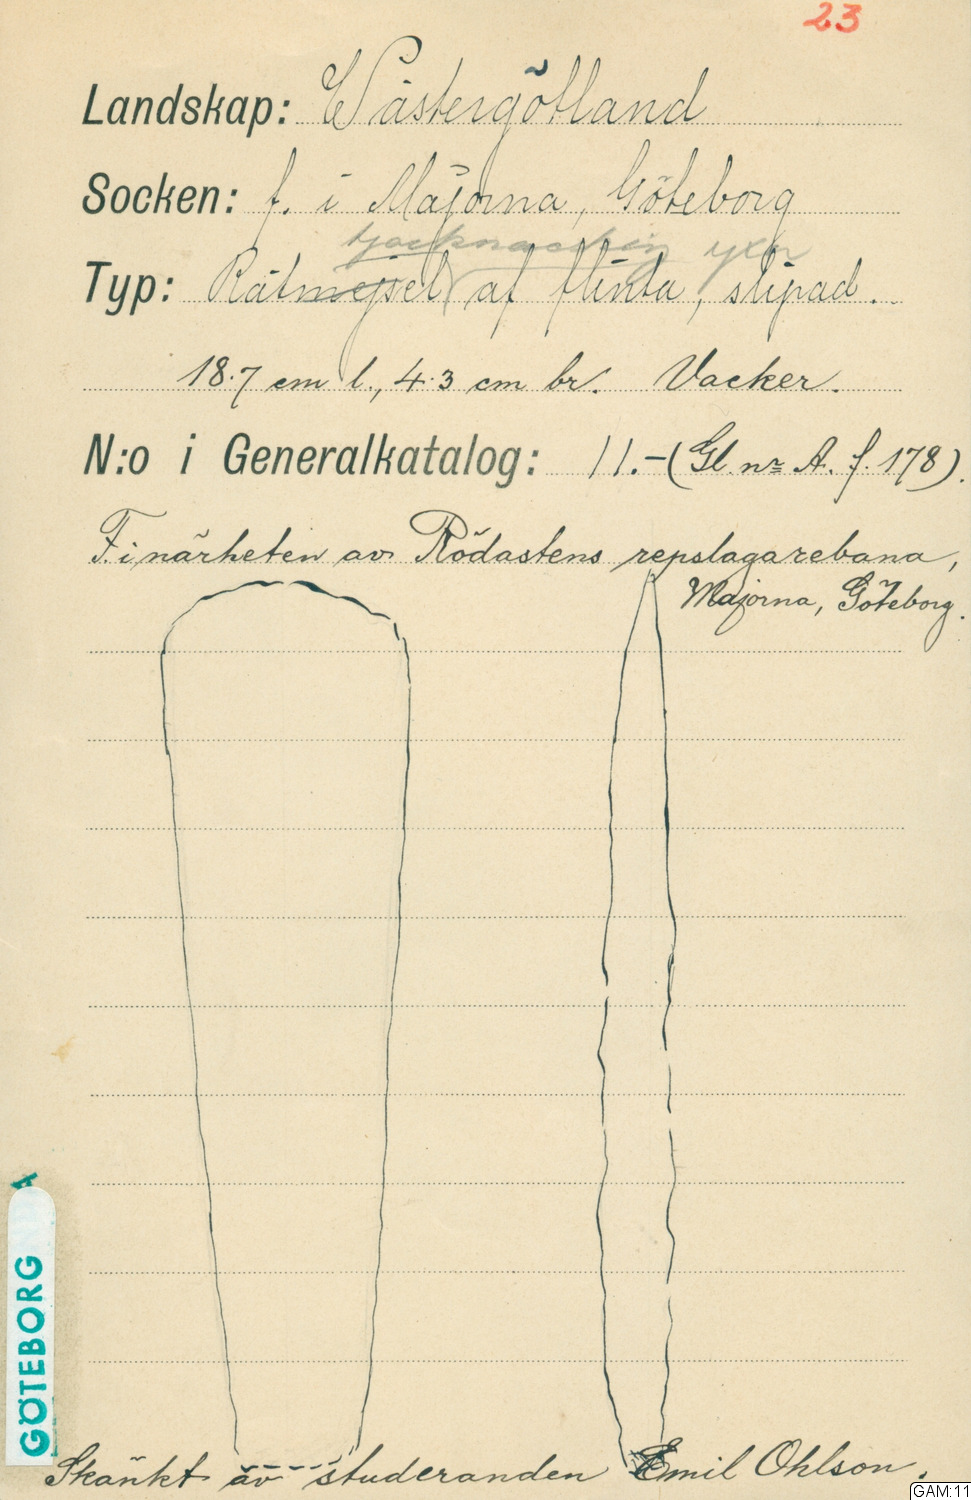 23
Landskap: Västergötland
Socken: f. i Majorna, Göteborg
tjocknackig yxa
Typ: Rätmejsel af flinta, slipad.
18.7 cm l., 4.3 cm br. Vacker.
N:o i Generalkatalog: 11.-(Gl. nr A. f. 178).
F. i närheten av Rödastens repslagarebana,
Majorna, Göteborg.
GÖTEBORG
Skänkt av studeranden Emil Ohlson.
GAM:11